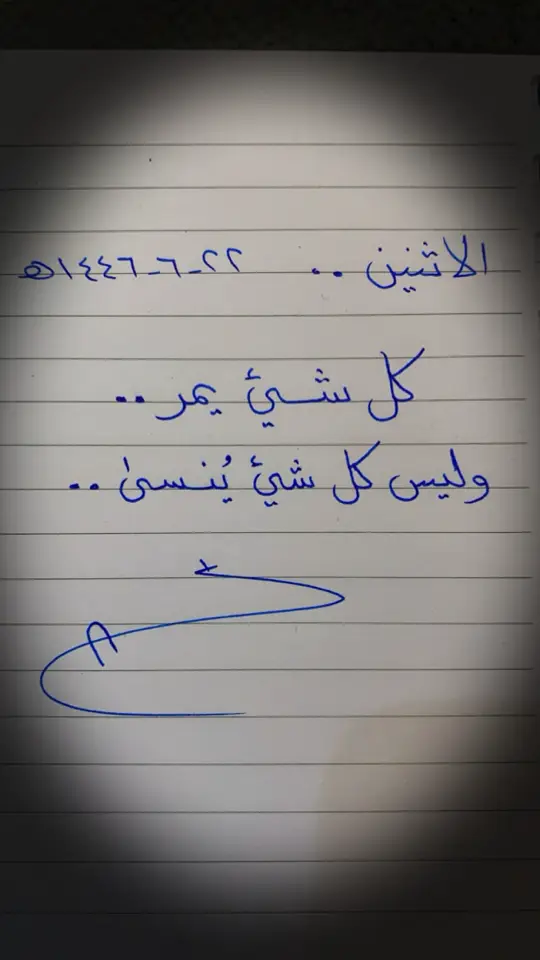 الاثنين .. ٢٢-٦-١٤٤٦ه
كل شيئ يمر ..
وليس كل شيئ يُنسىٰ ..